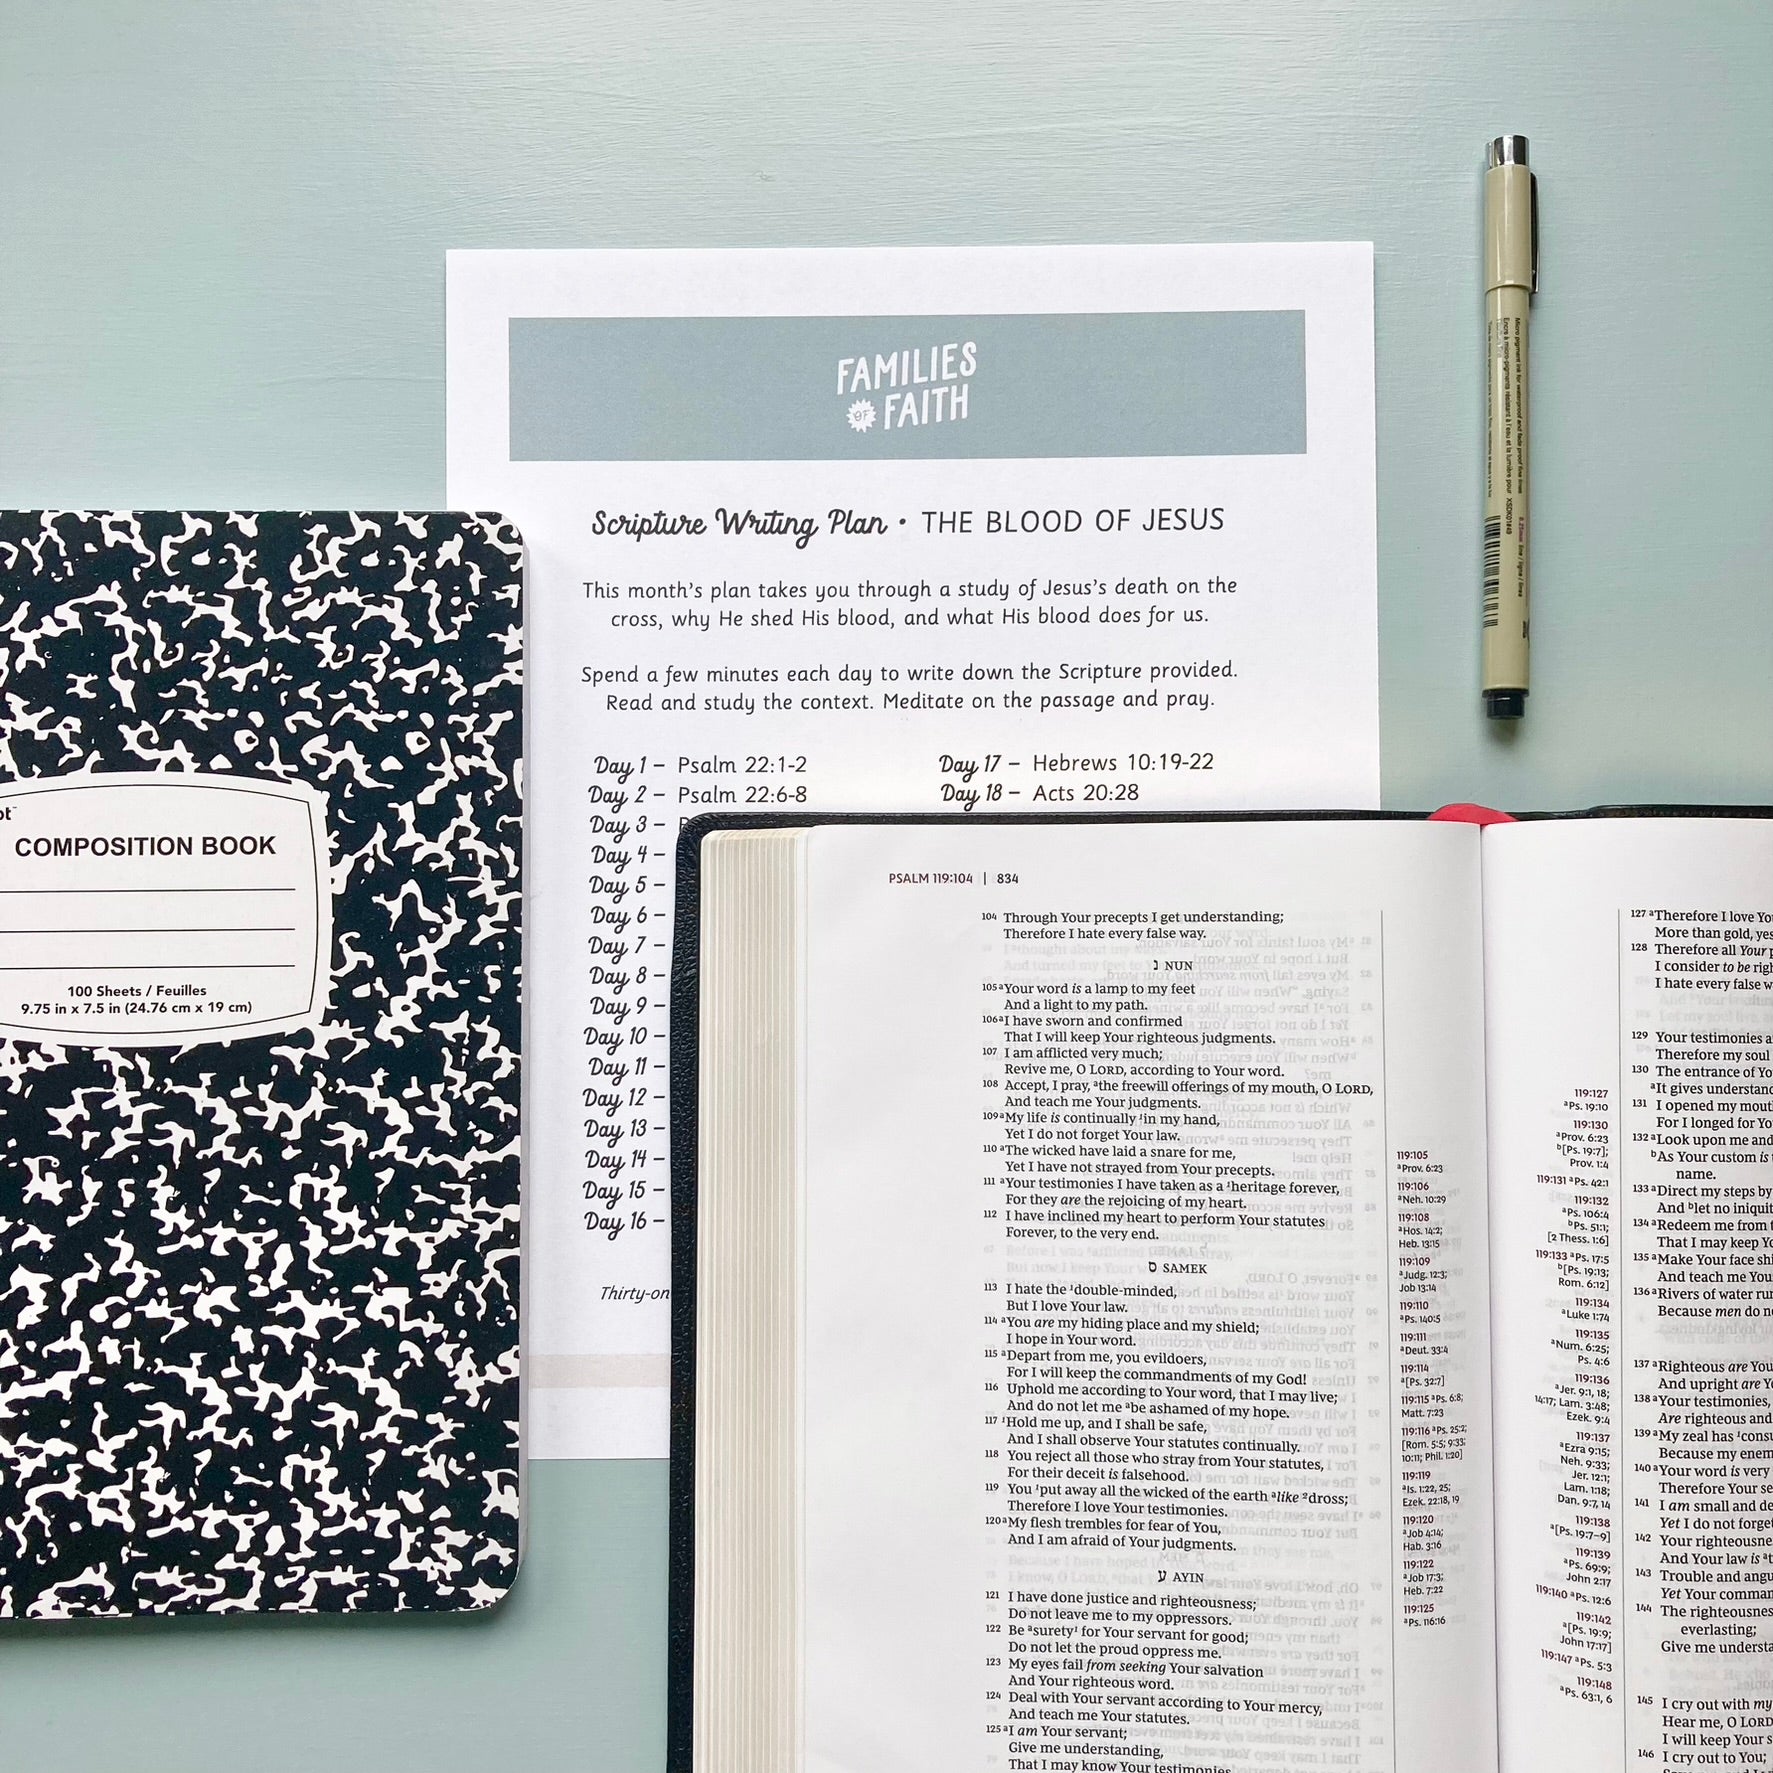 FAMILIES
OF FAITH
Scripture Writing Plan • THE BLOOD OF JESUS
This month's plan takes you through a study of Jesus's death on the
cross, why He shed His blood, and what His blood does for us.
Spend a few minutes each day to write down the Scripture provided.
Read and study the context. Meditate on the passage and pray.
Day 1 – Psalm 22:1-2
Day 2 – Psalm 22:6-8
Day 3 –
Day 4 –
Day 5 –
Day 6 –
Day 7 –
Day 8 –
Day 9 –
Day 10 –
Day 11 –
Day 12 –
Day 13 –
Day 14 –
Day 15 –
Day 16 –
Day 17 – Hebrews 10:19-22
Day 18 – Acts 20:28
Thirty-on
COMPOSITION BOOK
100 Sheets / Feuilles
9.75 in x 7.5 in (24.76 cm x 19 cm)
Micro pigment ink for waterproof and fade proof fine lines
Encre à micro-pigments résistant à l'eau et à la lumière pour
XSDK01#49
0.25mm line / ligne / lines
PSALM 119:104 | 834
104 Through Your precepts I get understanding;
Therefore I hate every false way.
נ NUN
105 a Your word is a lamp to my feet
And a light to my path.
106 a I have sworn and confirmed
That I will keep Your righteous judgments.
107 I am afflicted very much;
Revive me, O LORD, according to Your word.
108 Accept, I pray, a the freewill offerings of my mouth, O LORD,
And teach me Your judgments.
109 a My life is continually 1 in my hand,
Yet I do not forget Your law.
110 a The wicked have laid a snare for me,
Yet I have not strayed from Your precepts.
111 a Your testimonies I have taken as a 1 heritage forever,
For they are the rejoicing of my heart.
112 I have inclined my heart to perform Your statutes
Forever, to the very end.
ס SAMEK
113 I hate the 1 double-minded,
But I love Your law.
114 a You are my hiding place and my shield;
I hope in Your word.
115 a Depart from me, you evildoers,
For I will keep the commandments of my God!
116 Uphold me according to Your word, that I may live;
And do not let me a be ashamed of my hope.
117 1 Hold me up, and I shall be safe,
And I shall observe Your statutes continually.
118 You reject all those who stray from Your statutes,
For their deceit is falsehood.
119 You 1 put away all the wicked of the earth a like 2 dross;
Therefore I love Your testimonies.
120 a My flesh trembles for fear of You,
And I am afraid of Your judgments.
ע AYIN
121 I have done justice and righteousness;
Do not leave me to my oppressors.
122 Be a surety 1 for Your servant for good;
Do not let the proud oppress me.
123 My eyes fail from seeking Your salvation
And Your righteous word.
124 Deal with Your servant according to Your mercy,
And teach me Your statutes.
125 a I am Your servant;
Give me understanding,
That I may know Your testimonies.
119:105
a Prov. 6:23
119:106
a Neh. 10:29
119:108
a Hos. 14:2;
Heb. 13:15
119:109
a Judg. 12:3;
Job 13:14
119:110
a Ps. 140:5
119:111
a Deut. 33:4
119:114
a [Ps. 32:7]
119:115 a Ps. 6:8;
Matt. 7:23
119:116 a Ps. 25:2;
[Rom. 5:5; 9:33;
10:11; Phil. 1:20]
119:119
a Is. 1:22, 25;
Ezek. 22:18, 19
119:120
a Job 4:14;
Hab. 3:16
119:122
a Job 17:3;
Heb. 7:22
119:125
a Ps. 116:16
119:127
a Ps. 19:10
119:130
a Prov. 6:23
b [Ps. 19:7];
Prov. 1:4
119:131 a Ps. 42:1
119:132
a Ps. 106:4
b Ps. 51:1;
[2 Thess. 1:6]
119:133 a Ps. 17:5
b [Ps. 19:13;
Rom. 6:12]
119:134
a Luke 1:74
119:135
a Num. 6:25;
Ps. 4:6
119:136
a Jer. 9:1, 18;
14:17; Lam. 3:48;
Ezek. 9:4
119:137
a Ezra 9:15;
Neh. 9:33;
Jer. 12:1;
Lam. 1:18;
Dan. 9:7, 14
119:138
a [Ps. 19:7–9]
119:139
a Ps. 69:9;
John 2:17
119:140 a Ps. 12:6
119:142
a [Ps. 19:9;
John 17:17]
119:147 a Ps. 5:3
119:148
a Ps. 63:1, 6
127 a Therefore I love Yo
More than gold, yes
128 Therefore all Your p
I consider to be righ
I hate every false w
129 Your testimonies a
Therefore my soul
130 The entrance of Yo
a It gives understand
131 I opened my mout
For I longed for Yo
132 a Look upon me and
b As Your custom is
name.
133 a Direct my steps by
And b let no iniquit
134 a Redeem me from t
That I may keep Yo
135 a Make Your face shi
And teach me You
136 a Rivers of water ru
Because men do n
137 a Righteous are You
And upright are Y
138 a Your testimonies,
Are righteous and
139 a My zeal has 1 consu
Because my enem
140 a Your word is very
Therefore Your se
141 I am small and de
Yet I do not forget
142 Your righteousne
And Your law is a t
143 Trouble and angu
Yet Your comman
144 The righteousnes
everlasting;
Give me understa
145 I cry out with my
Hear me, O LORD
I will keep Your s
146 I cry out to You;